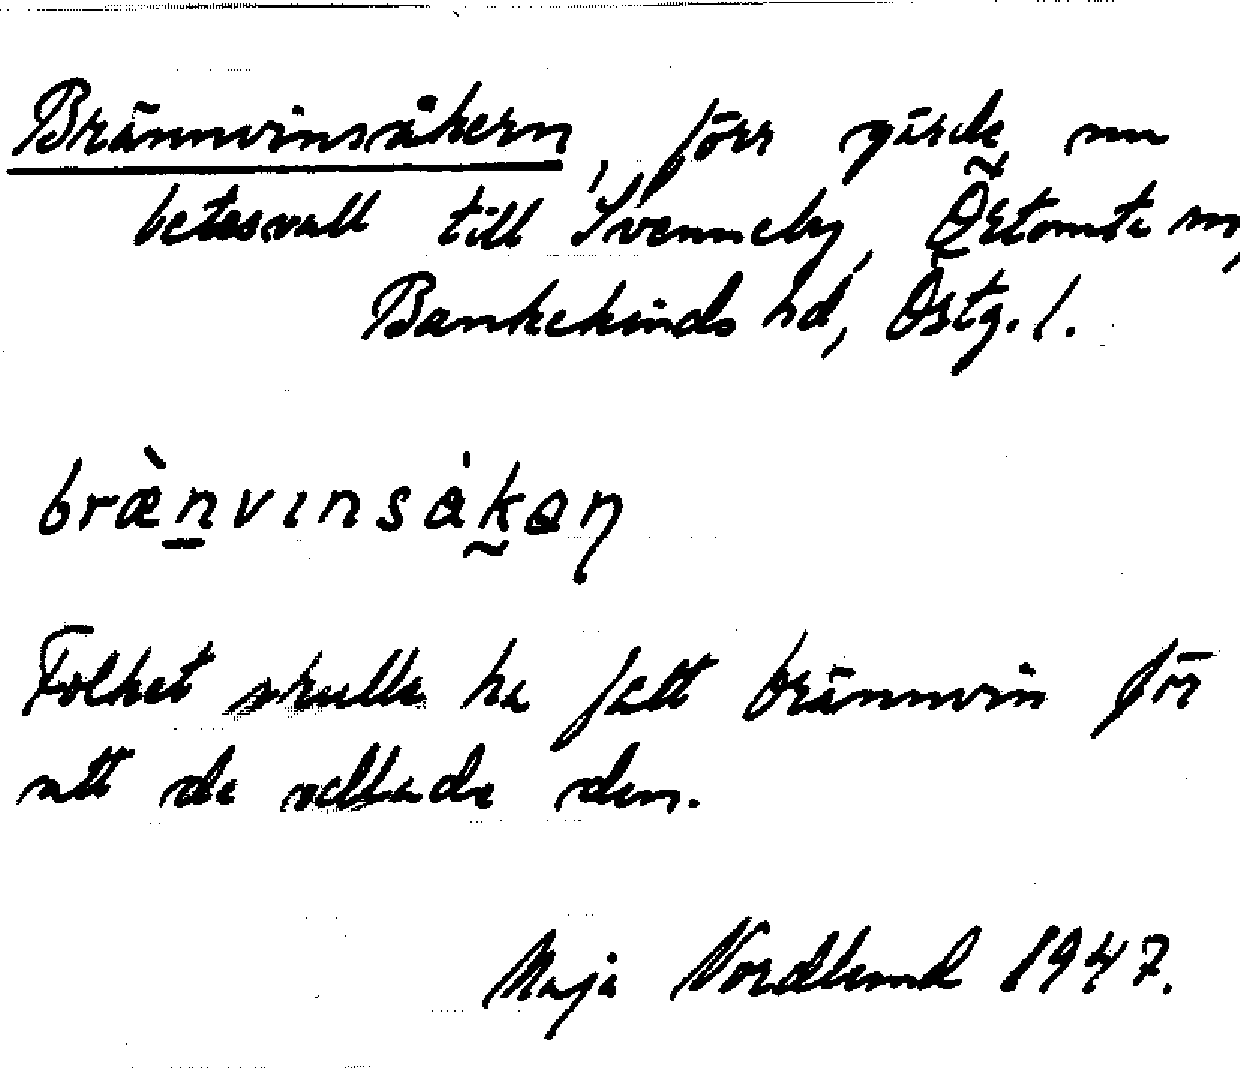 Brännvinsåkern, förr gärde, nu
betesvall till Svenneby, Örtomta sn,
Bankekinds hd, Östg. l.
bræ̀nvinsåkəɳ
Folket skulle ha fått brännvin för
att de vallade den.
Maja Nordlund 1947.